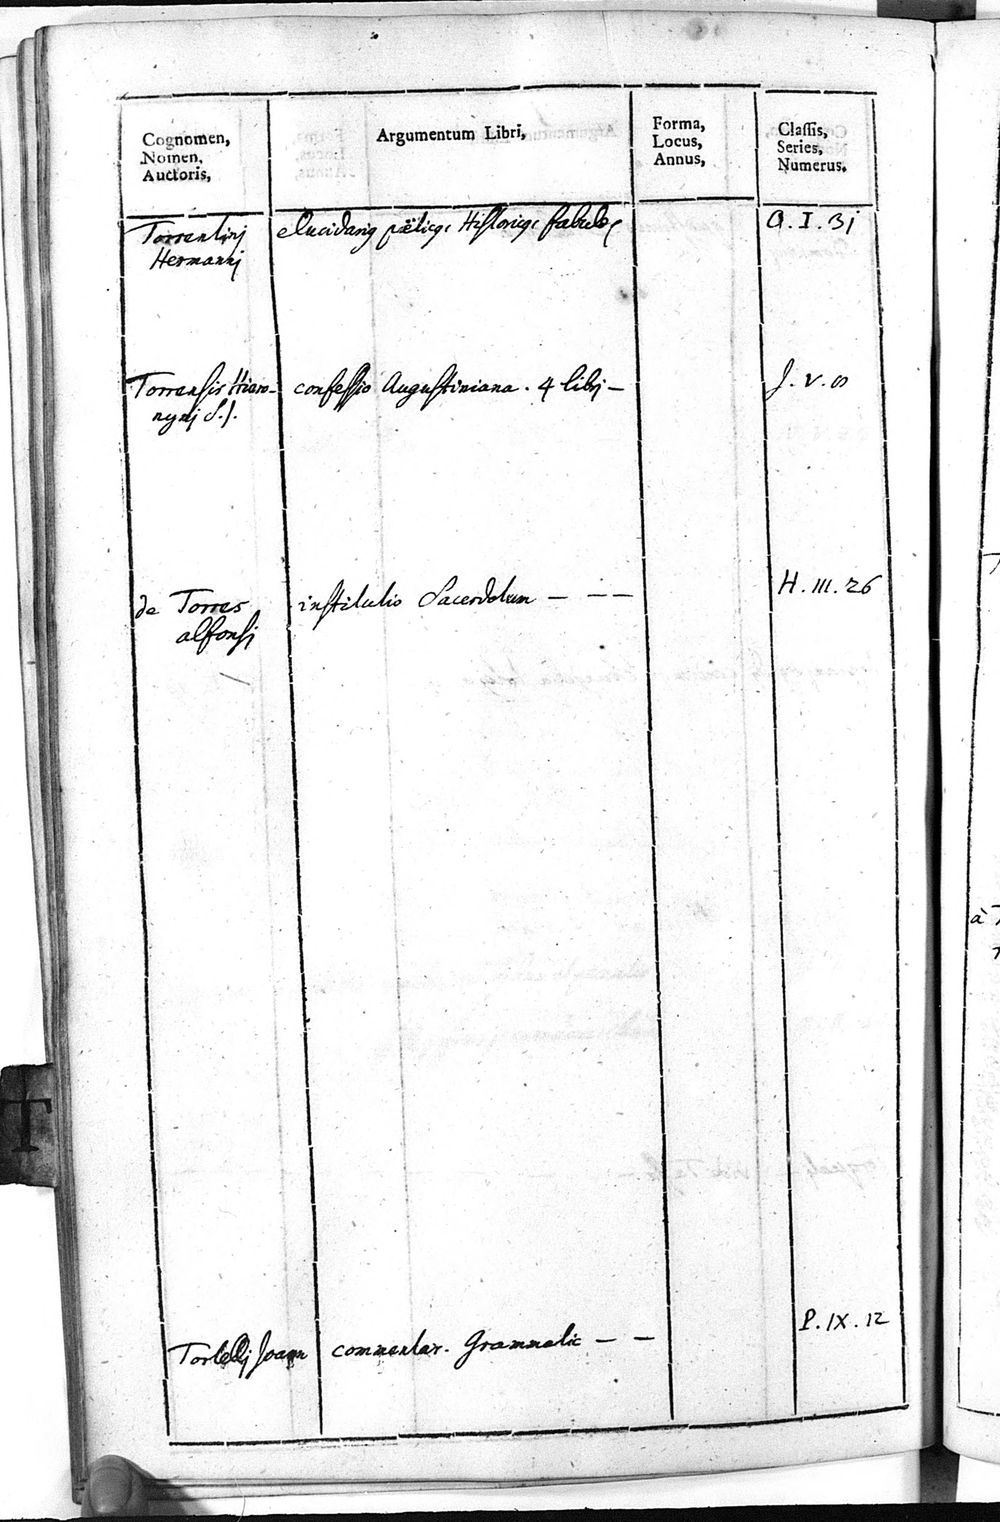 Cognomen,
Nomen,
Auctoris,
Argumentum Libri,
Forma,
Locus,
Annus,
Classis,
Series,
Numerus.
Torrentinj
Hermannj
elucidarius poëticus Historicus fabulos
Q. I. 31
Torrensis Hiero-
nymj S.J.
confessio Augustiniana. 4 librj —
J. V. 8
de Torres
alfonsj
institutio Sacerdotum — — —
H. III. 26
Tortellj Joann
commentar. Grammatic — —
P. IX. 12
T
à